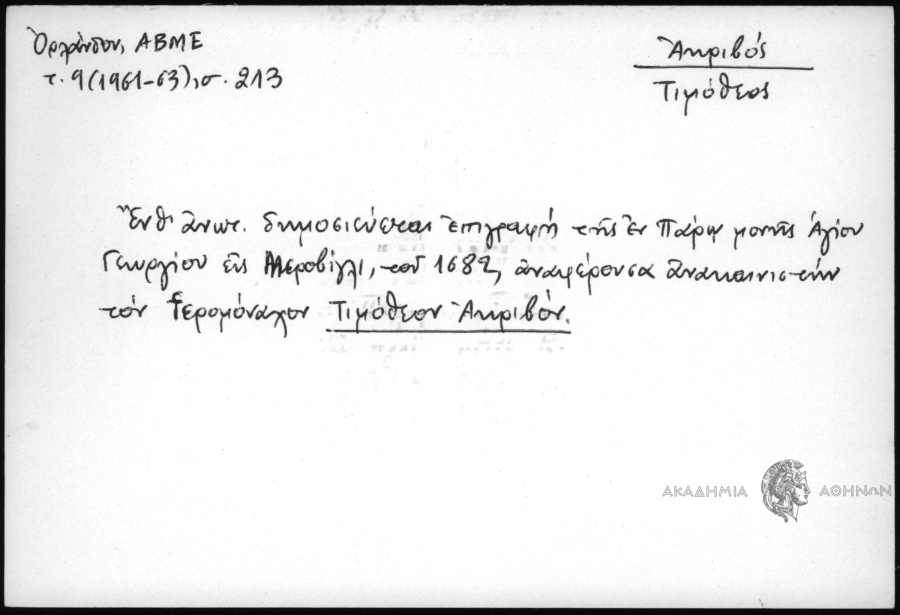 Ὀρλάνδου, ΑΒΜΕ
τ. 9 (1961-63), σ. 213
Ἀκριβός
Τιμόθεος
Ἔνθ' ἀνωτ. δημοσιεύεται ἐπιγραφή τῆς ἐν Πάρῳ μονῆς Ἁγίου
Γεωργίου εἰς Μεροβίγλι, τοῦ 1682, ἀναφέρουσα ἀνακαινιστήν
τόν ἱερομόναχον Τιμόθεον Ἀκριβόν.
ΑΚΑΔΗΜΙΑ ΑΘΗΝΩΝ